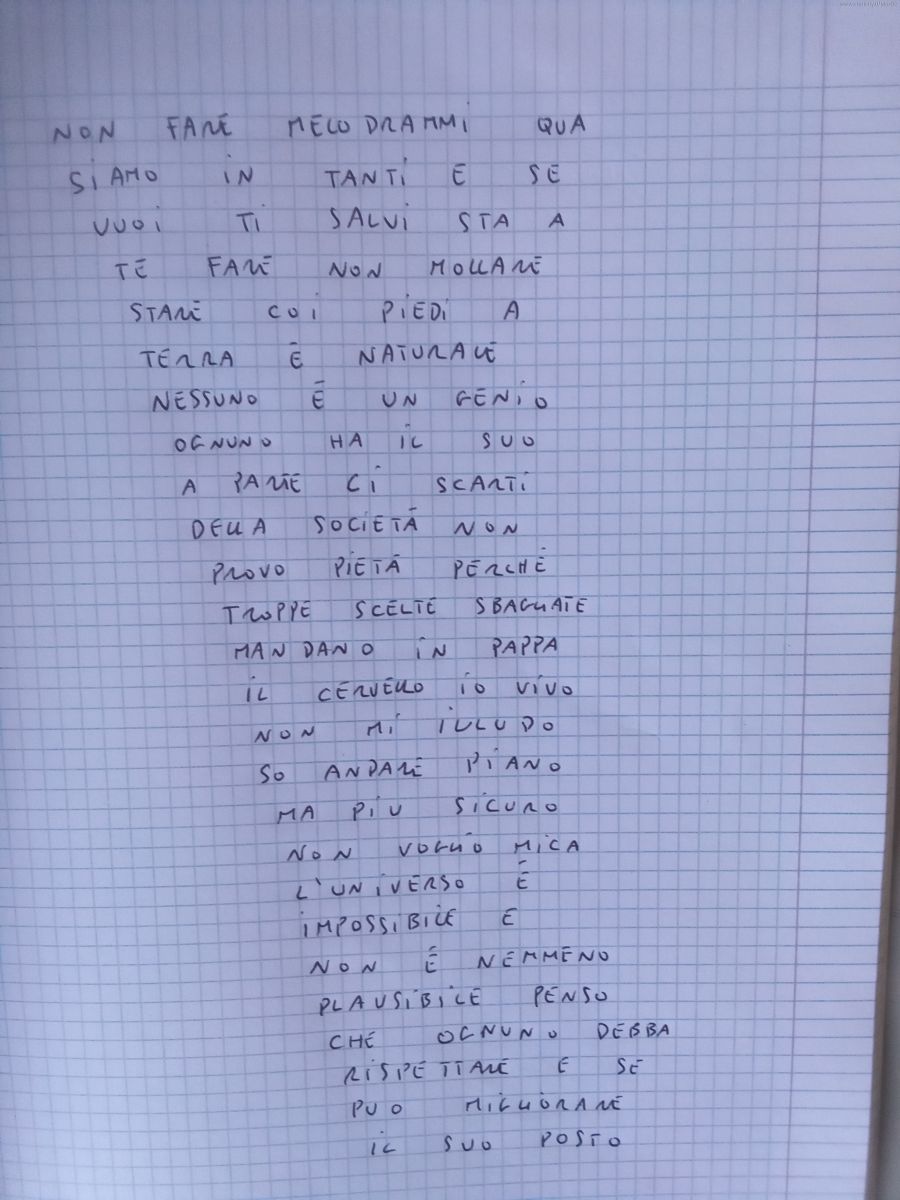 NON FARE MELODRAMMI QUA
SIAMO IN TANTI E SE
VUOI TI SALVI STA A
TE FARE NON MOLLARE
STARE COI PIEDI A
TERRA È NATURALE
NESSUNO È UN GENIO
OGNUNO HA IL SUO
A PARTE CI SCARTI
DELLA SOCIETÀ NON
PROVO PIETÀ PERCHÉ
TROPPE SCELTE SBAGLIATE
MANDANO IN PAPPA
IL CERVELLO IO VIVO
NON MI ILLUDO
SO ANDARE PIANO
MA PIU SICURO
NON VOGLIO MICA
L'UNIVERSO È
IMPOSSIBILE E
NON È NEMMENO
PLAUSIBILE PENSO
CHE OGNUNO DEBBA
RISPETTARE E SE
PUO MIGLIORARE
IL SUO POSTO